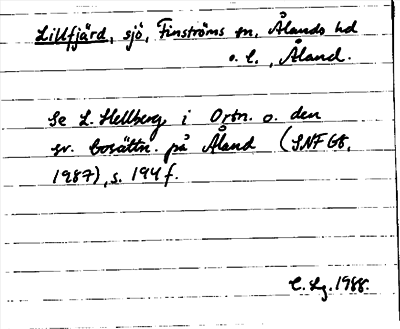 Lillfjärd, sjö, Finströms sn, Ålands hd
o. l., Åland.
Se L. Hellberg i Ortn. o. den
sv. bosättn. på Åland (SNF 68,
1987), s. 194 f.
C. Lg. 1988.